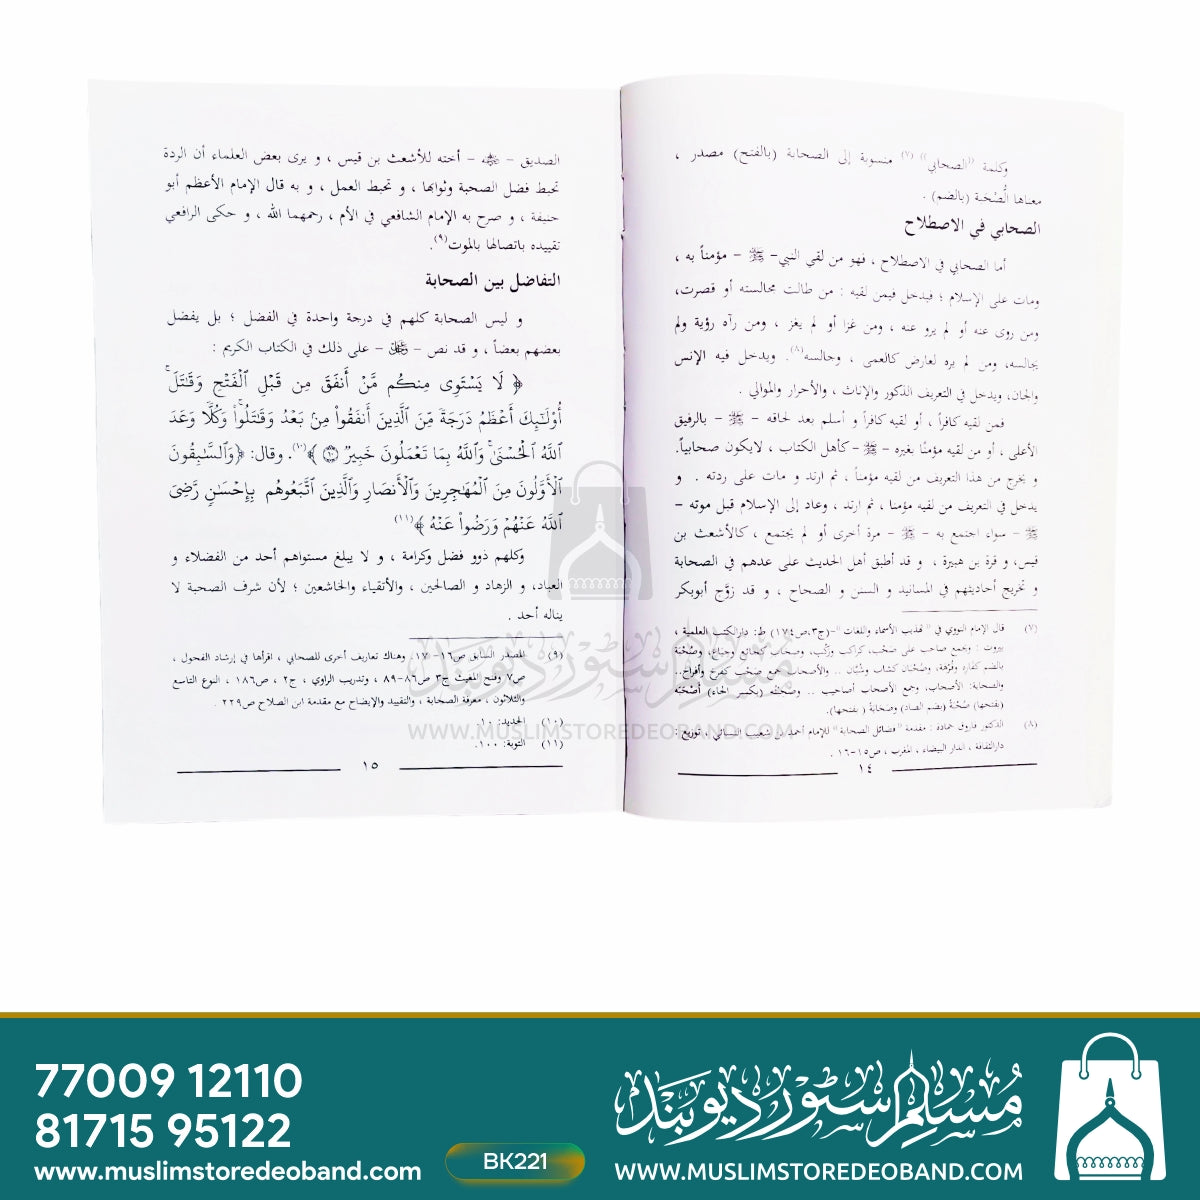 وكلمة "الصحابي" (٧) منسوبة إلى الصحابة (بالفتح) مصدر ،
معناها الصُّحْبَة (بالضم) .
الصحابي في الاصطلاح
أما الصحابي في الاصطلاح ، فهو من لقي النبي- ﷺ - مؤمناً به ،
ومات على الإسلام ؛ فيدخل فيمن لقيه : من طالت مجالسته أو قصرت،
ومن روى عنه أو لم يرو عنه ، ومن غزا أو لم يغز ، ومن رآه رؤية ولم
يجالسه، ومن لم يره لعارض كالعمى ، وجالسه(٨). ويدخل فيه الإنس
والجان، ويدخل في التعريف الذكور والإناث ، والأحرار والموالي .
فمن لقيه كافراً ، أو لقيه كافراً و أسلم بعد لحاقه - ﷺ - بالرفيق
الأعلى ، أو من لقيه مؤمنًا بغيره - ﷺ -كأهل الكتاب ، لايكون صحابياً.
و يخرج من هذا التعريف من لقيه مؤمناً ، ثم ارتد و مات على ردته . و
يدخل في التعريف من لقيه مؤمنا ، ثم ارتد ، وعاد إلى الإسلام قبل موته -
ﷺ - سواء اجتمع به - ﷺ - مرة أخرى أو لم يجتمع ، كالأشعث بن
قيس، و قرة بن هبيرة ، و قد أطبق أهل الحديث على عدهم في الصحابة
و تخريج أحاديثهم في المسانيد و السنن و الصحاح ، و قد زوَّج أبوبكر
(٧) قال الإمام النووي في "تهذيب الأسماء واللغات"-(ج٣،ص١٧٤) ط: دارالكتب العلمية ،
بيروت : وجمع صاحب على صَحْب، كراكب وركْب، وصحاب كجائع وجياع، وصُحْبَة
بالضم كفاره وفُرهة، وصُحْبان كشاب وشُبَّان .. والأصحاب جمع صحْب كفرخ وأفراخ..
والصحابة: الأصحاب، وجمع الأصحاب أصاحيب .. وصَحِبْتُه (بكسر الحاء) أَصْحَبُه
(بفتحها) صُحْبَةً (بضم الصاد) وصَحَابَةً ( بفتحها).
(٨) الدكتور فاروق حمادة : مقدمة "فضائل الصحابة" للإمام أحمد بن شعيب النسائي ، توزيع :
دارالثقافة ، الدار البيضاء ، المغرب ، ص١٥-١٦ .
١٤
الصديق - ﷺ - أخته للأشعث بن قيس ، و يرى بعض العلماء أن الردة
تحبط فضل الصحبة وثوابها ، و تحبط العمل ، و به قال الإمام الأعظم أبو
حنيفة ، و صرح به الإمام الشافعي في الأم ، رحمهما الله ، و حكى الرافعي
تقييده باتصالها بالموت(٩).
التفاضل بين الصحابة
و ليس الصحابة كلهم في درجة واحدة في الفضل ؛ بل يفضل
بعضهم بعضاً ، و قد نص - ﷻ - على ذلك في الكتاب الكريم :
﴿ لَا يَسْتَوِى مِنكُم مَّنْ أَنفَقَ مِن قَبْلِ ٱلْفَتْحِ وَقَٰتَلَ ۚ
أُو۟لَٰٓئِكَ أَعْظَمُ دَرَجَةً مِّنَ ٱلَّذِينَ أَنفَقُوا۟ مِنۢ بَعْدُ وَقَٰتَلُوا۟ ۚ وَكُلًّا وَعَدَ
ٱللَّهُ ٱلْحُسْنَىٰ ۚ وَٱللَّهُ بِمَا تَعْمَلُونَ خَبِيرٌ ۝١٠ ﴾(١٠). وقال: ﴿وَٱلسَّٰبِقُونَ
ٱلْأَوَّلُونَ مِنَ ٱلْمُهَٰجِرِينَ وَٱلْأَنصَارِ وَٱلَّذِينَ ٱتَّبَعُوهُم بِإِحْسَٰنٍ رَّضِىَ
ٱللَّهُ عَنْهُمْ وَرَضُوا۟ عَنْهُ ﴾(١١)
وكلهم ذوو فضل وكرامة ، و لا يبلغ مستواهم أحد من الفضلاء و
العباد، و الزهاد و الصالحين ، والأتقياء والخاشعين ؛ لأن شرف الصحبة لا
يناله أحد .
(٩) المصدر السابق ص١٦-١٧، وهناك تعاريف أخرى للصحابي ، اقرأها في إرشاد الفحول ،
ص٧ وفتح المغيث ج٣ ص٨٦-٨٩ ، وتدريب الراوي ، ج٢ ، ص١٨٦ ، النوع التاسع
والثلاثون ، معرفة الصحابة ، والتقييد والإيضاح مع مقدمة ابن الصلاح ص٢٢٩.
(١٠) الحديد: ١٠.
(١١) التوبة: ١٠٠.
١٥
مسلم سٹور دیوبند
WWW.MUSLIMSTOREDEOBAND.COM
77009 12110
81715 95122
www.muslimstoredeoband.com
BK221
مُسلم سٹور دیوبند
WWW.MUSLIMSTOREDEOBAND.COM